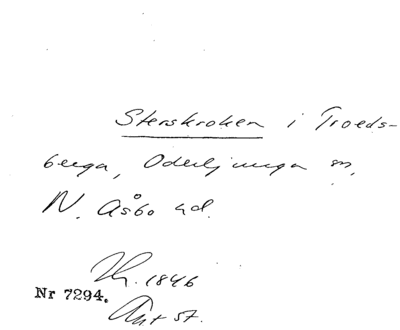 Sterskroken i Troeds-
berga, Oderljunga sn,
N. Åsbo hd.
1846
Nr 7294.
st.